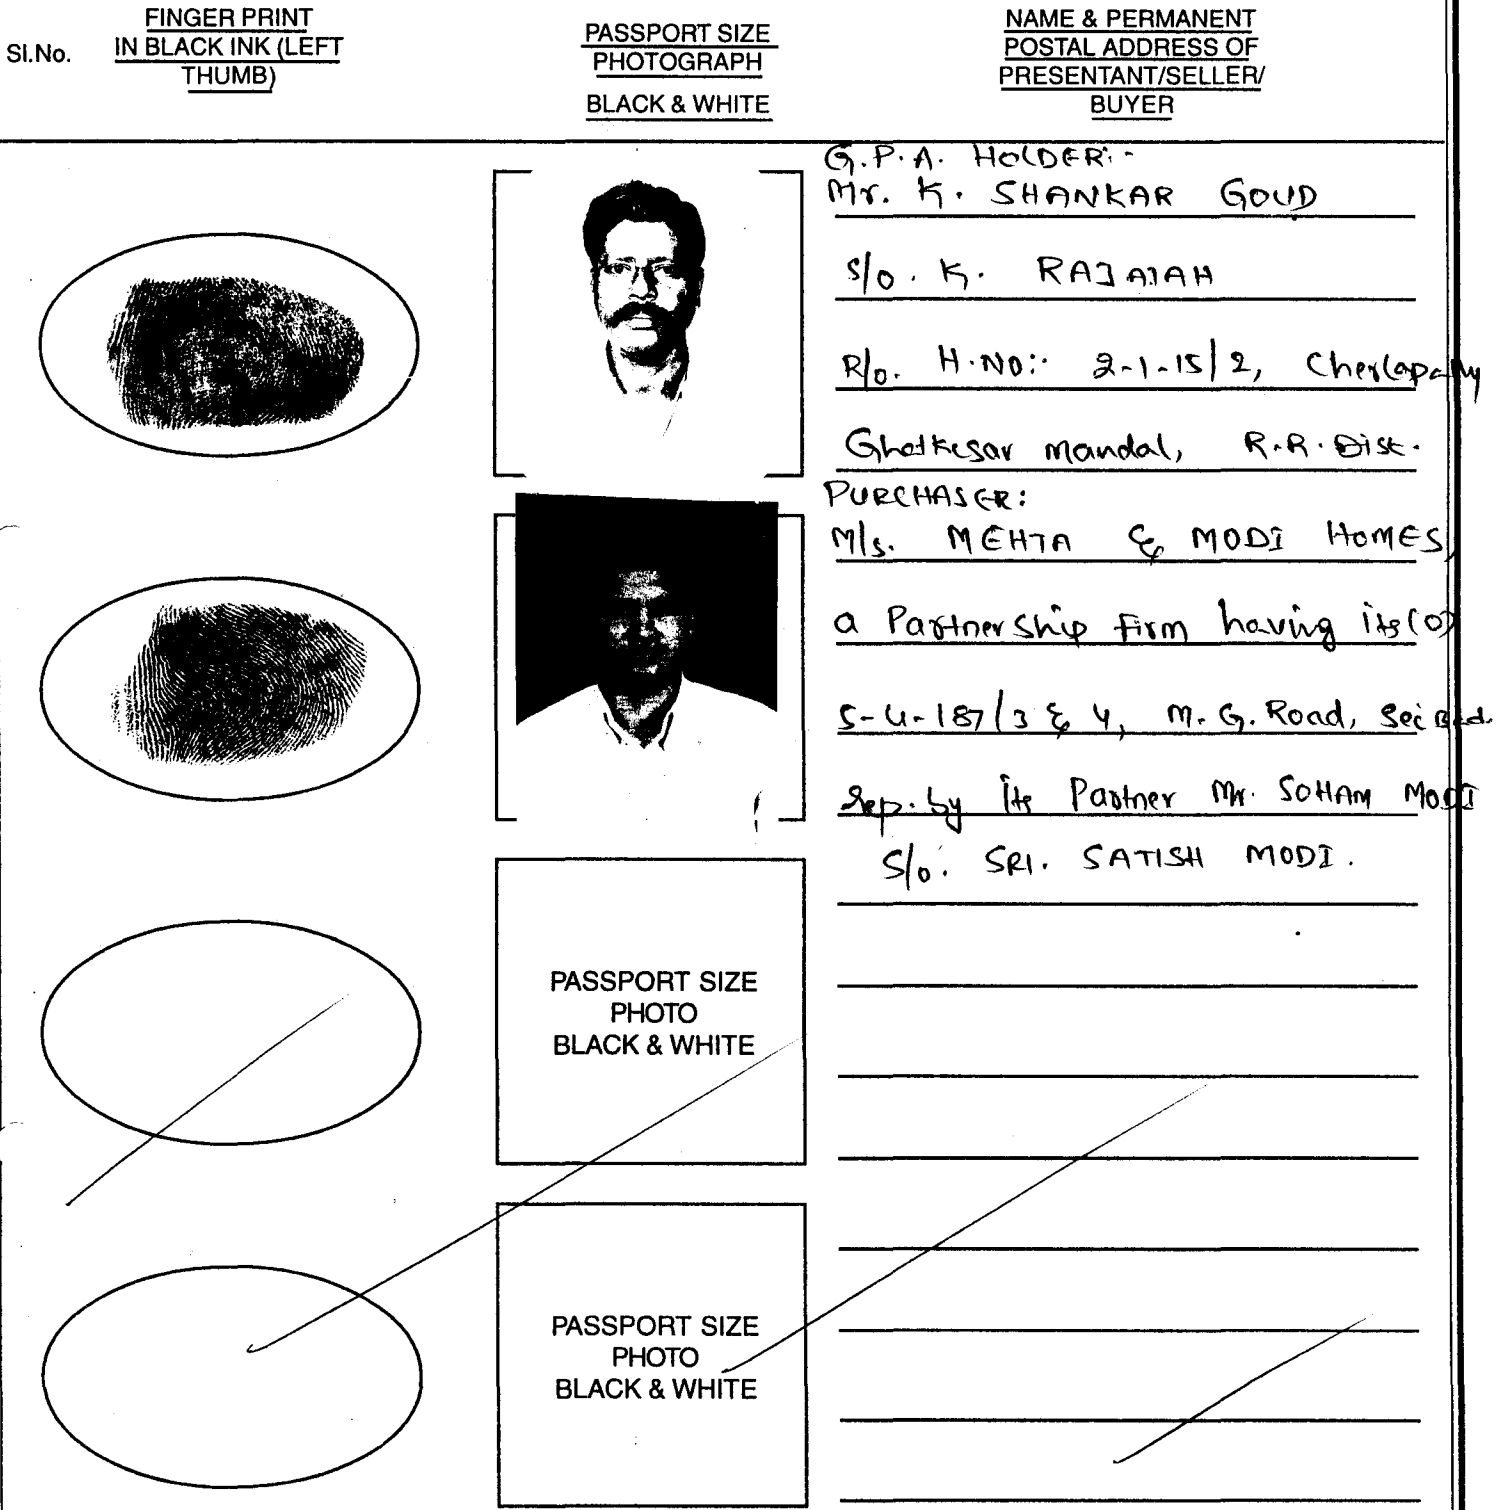 Sl.No.
FINGER PRINT
IN BLACK INK (LEFT
THUMB)
PASSPORT SIZE
PHOTOGRAPH
BLACK & WHITE
NAME & PERMANENT
POSTAL ADDRESS OF
PRESENTANT/SELLER/
BUYER
G.P.A. HOLDER:-
Mr. K. SHANKAR GOUD
S/o. K. RAJAIAH
R/o. H.NO:- 2-1-15/2, Cherlapally
Ghatkesar mandal, R.R. Dist.
PURCHASER:
M/s. MEHTA & MODI HOMES,
a Partnership firm having its (O)
5-4-187/3 & 4, M.G. Road, Sec'Bad.
rep. by its Partner Mr. SOHAM MODI
S/o. SRI. SATISH MODI.
PASSPORT SIZE
PHOTO
BLACK & WHITE
PASSPORT SIZE
PHOTO
BLACK & WHITE